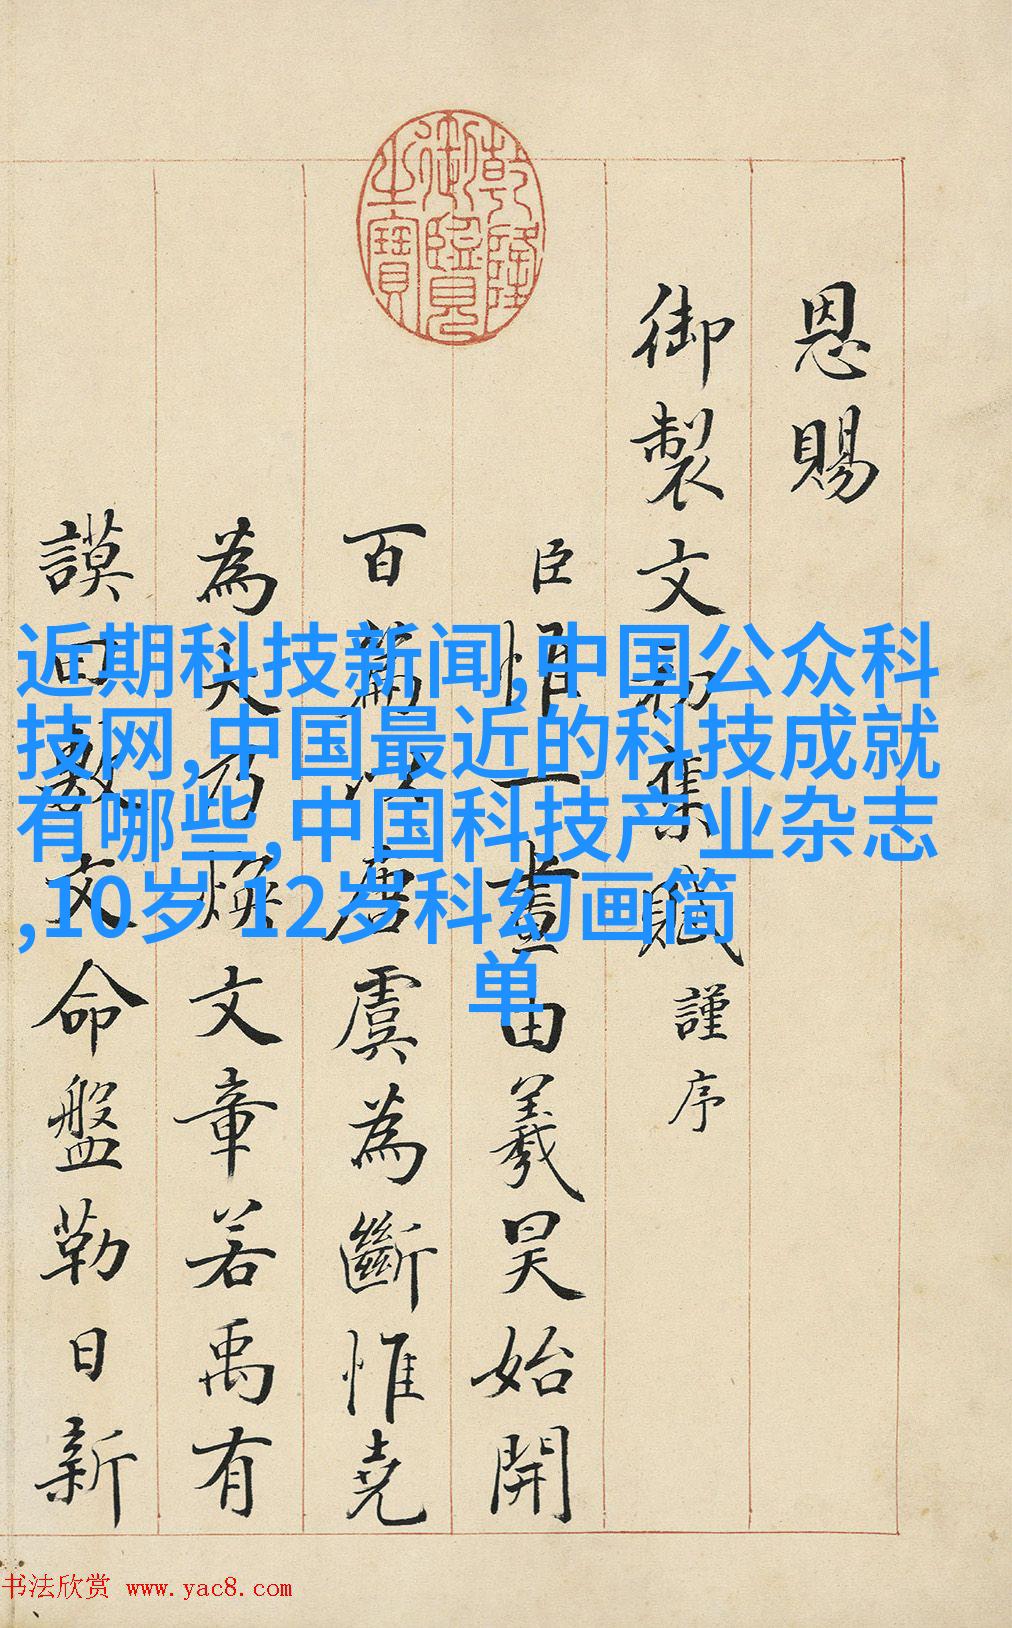 乾隆御覽之寶
恩賜
御製文初集賦謹序
臣一畫由羲昊始開
百篇以唐虞為斷惟堯
為大乃煥文章若禹有
謨曰敷文命盤勒日新
近期科技新闻,中国公众科
技网,中国最近的科技成就
有哪些,中国科技产业杂志
,10岁-12岁科幻画简
单
书法欣赏 www.yac8.com